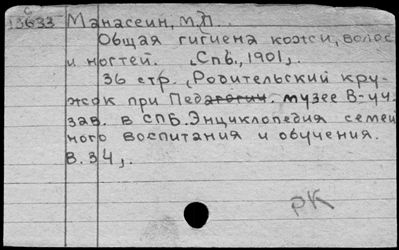 С
13633 Манасеин, М.П.
Общая гигиена кожи, волос
и ногтей. СПб., 1901,.
36 стр. Родительский кру-
жок при Педагогич. музее В-уч.
зав. в СПБ. Энциклопедия семей
ного воспитания и обучения.
В.34,.
РК